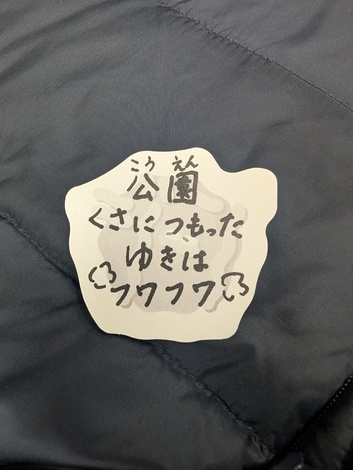 こうえん
公園
くさにつもった
ゆきは
フワフワ